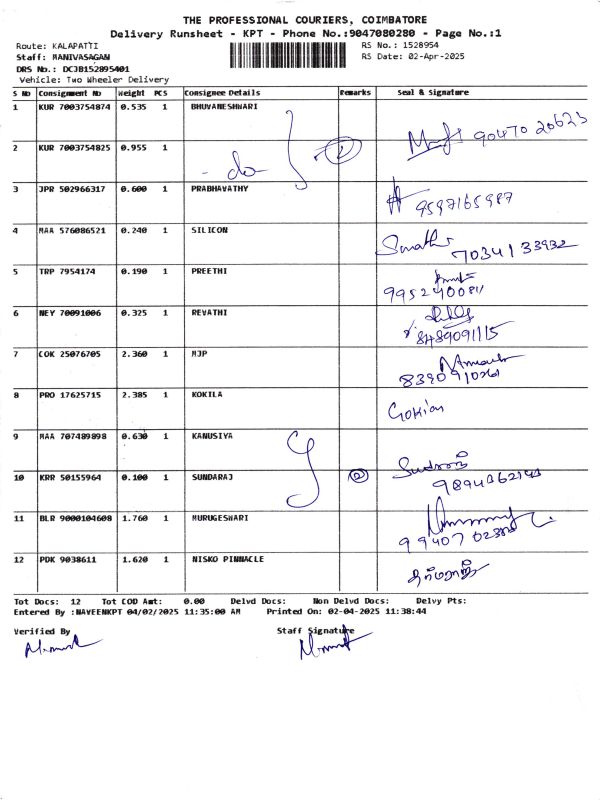 THE PROFESSIONAL COURIERS, COIMBATORE
Delivery Runsheet - KPT - Phone No.:9047080280 - Page No.:1
Route: KALAPATTI RS No.: 1528954
Staff: MANIVASAGAN RS Date: 02-Apr-2025
DRS No.: DCJB152895401
Vehicle: Two Wheeler Delivery
S No Consignment No Weight PCS Consignee Details Remarks Seal & Signature
1 KUR 7003754874 0.535 1 BHUVANESHWARI
9047020623
2 KUR 7003754825 0.955 1 - do 2
3 JPR 502966317 0.600 1 PRABHAVATHY
9597165987
4 MAA 576086521 0.240 1 SILICON
7034133932
5 TRP 7954174 0.190 1 PREETHI
9952400811
6 NEY 70091006 0.325 1 REVATHI
8489091115
7 COK 25076705 2.360 1 MJP
8 PRO 17625715 2.385 1 KOKILA
9 MAA 707489898 0.630 1 KANUSIYA
10 KRR 50155964 0.100 1 SUNDARAJ 2
11 BLR 9000104608 1.760 1 MURUGESWARI
12 PDK 9038611 1.620 1 NISKO PINNACLE
Tot Docs: 12 Tot COD Amt: 0.00 Delvd Docs: Non Delvd Docs: Delvy Pts:
Entered By :NAVEENKPT 04/02/2025 11:35:00 AM Printed On: 02-04-2025 11:38:44
Verified By Staff Signature